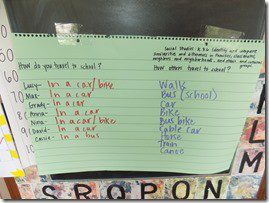 Social Studies K.2.2 Identify and compare
similarities and differences in families, classrooms,
neighbors and neighborhoods, and ethnic and cultural
groups.
How do you travel to school?
How others travel to school?
Lucy- In a car/bike
In a car
Grady- In a car
Anna- In a car
Nina- In a car/bike
David- In a car
In a bus
Walk
Bus (school)
Car
Bike
Bus bike
Cable car
Horse
Train
Canoe
S R Q P O N